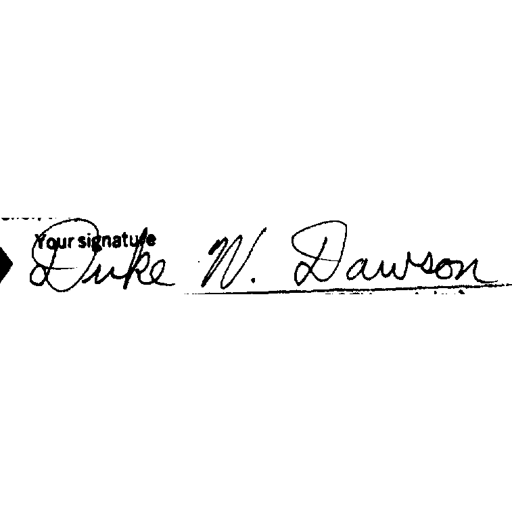 Your signature
Duke W. Dawson